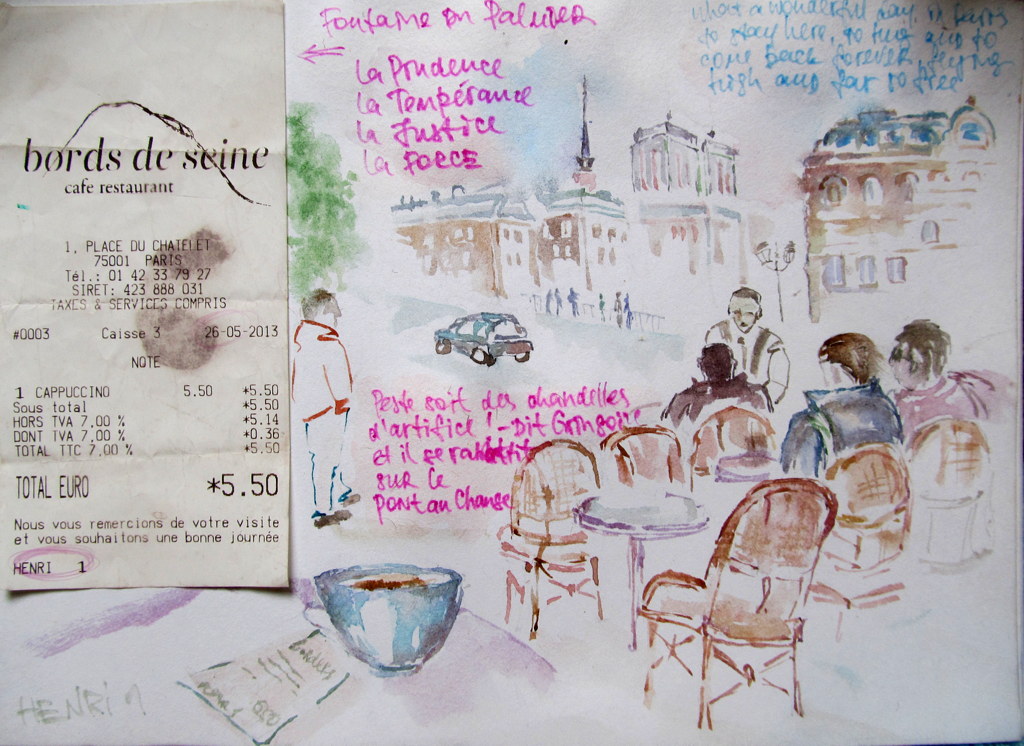 bords de seine
café restaurant
1, PLACE DU CHATELET
75001 PARIS
Tél.: 01 42 33 79 27
SIRET: 423 888 031
TAXES & SERVICES COMPRIS
#0003 Caisse 3 26-05-2013
NOTE
1 CAPPUCCINO 5.50 *5.50
Sous total *5.50
HORS TVA 7,00 % *5.14
DONT TVA 7,00 % *0.36
TOTAL TTC 7,00 % *5.50
TOTAL EURO *5.50
Nous vous remercions de votre visite
et vous souhaitons une bonne journée
HENRI 1
Fontaine du Palmier
La Prudence
la Tempérance
la Justice
la FORCE
what a wonderful day in Paris
to stay here, to and to
come back forever, flying
high and far so free
Peste soit des chandelles
d'artifice! - Dit Gringoire
et il se
sur le
PONT au Change
HENRI 1